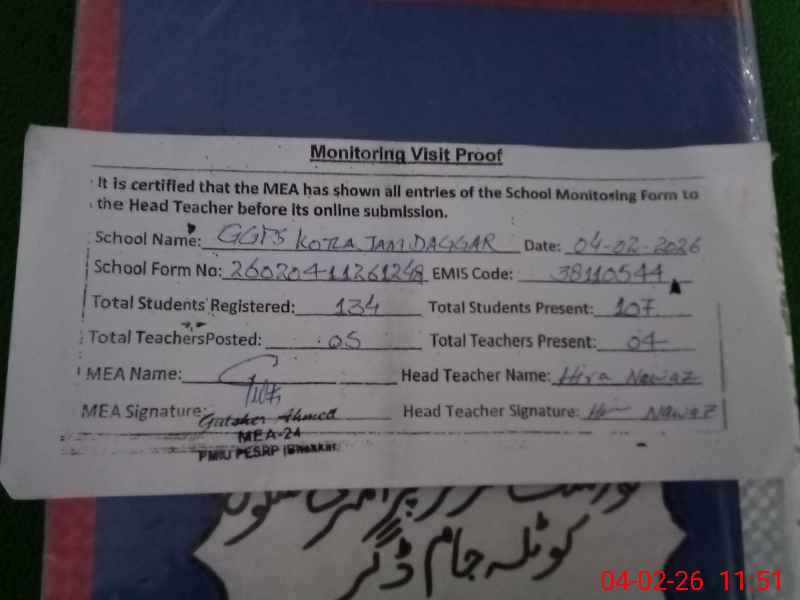 Monitoring Visit Proof
It is certified that the MEA has shown all entries of the School Monitoring Form to
the Head Teacher before its online submission.
School Name: GGPS KOTLA JAM DAGGAR Date: 04-02-2026
School Form No: 26020411261248 EMIS Code: 38110544
Total Students Registered: 134 Total Students Present: 107
Total TeachersPosted: 05 Total Teachers Present: 04
MEA Name: Head Teacher Name: Hira Nawaz
MEA Signature: Head Teacher Signature: Nawaz
Gulsher Ahmed
MEA-24
PMIU PESRP (Bhakkar)
گورنمنٹ گرلز پرائمری سکول
کوٹلہ جام ڈگر
04-02-26 11:51